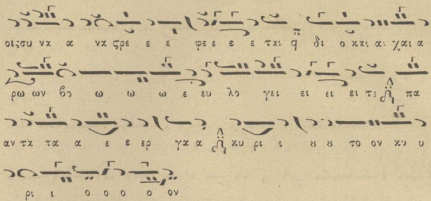 οις συ να α να ςρε ε ε φε ε ε ε ται δι ο και αι χαι α
ρω ων βο ω ω ω ε ευ λο γει ει ει ει τε πα
αν τα τα α ε ε ερ γα α κυ ρι ι ου ου το ον κυ υ
ρι ι ο ο ο ο ον